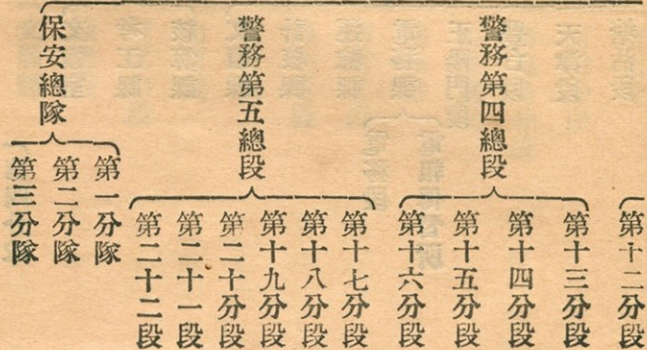 第十二分段
警務第四總段
第十三分段
第十四分段
第十五分段
第十六分段
警務第五總段
第十七分段
第十八分段
第十九分段
第二十分段
第二十一段
第二十二段
保安總隊
第一分隊
第二分隊
第三分隊